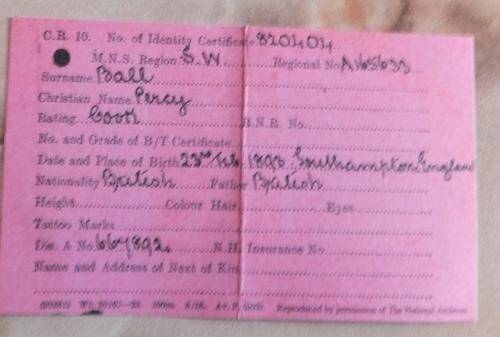 C.R. 10. No. of Identity Certificate 820404
M.N.S. Region S.W. Regional No. A165633
Surname Ball
Christian Name Percy
Rating Cook R.N.R. No.
No. and Grade of B/T Certificate
Date and Place of Birth 23rd Feb 1893 Southampton England
Nationality British Father British
Height Colour Hair Eyes
Tattoo Marks
Dis. A No. 667892 N.H. Insurance No.
Name and Address of Next of Kin
Reproduced by permission of The National Archives